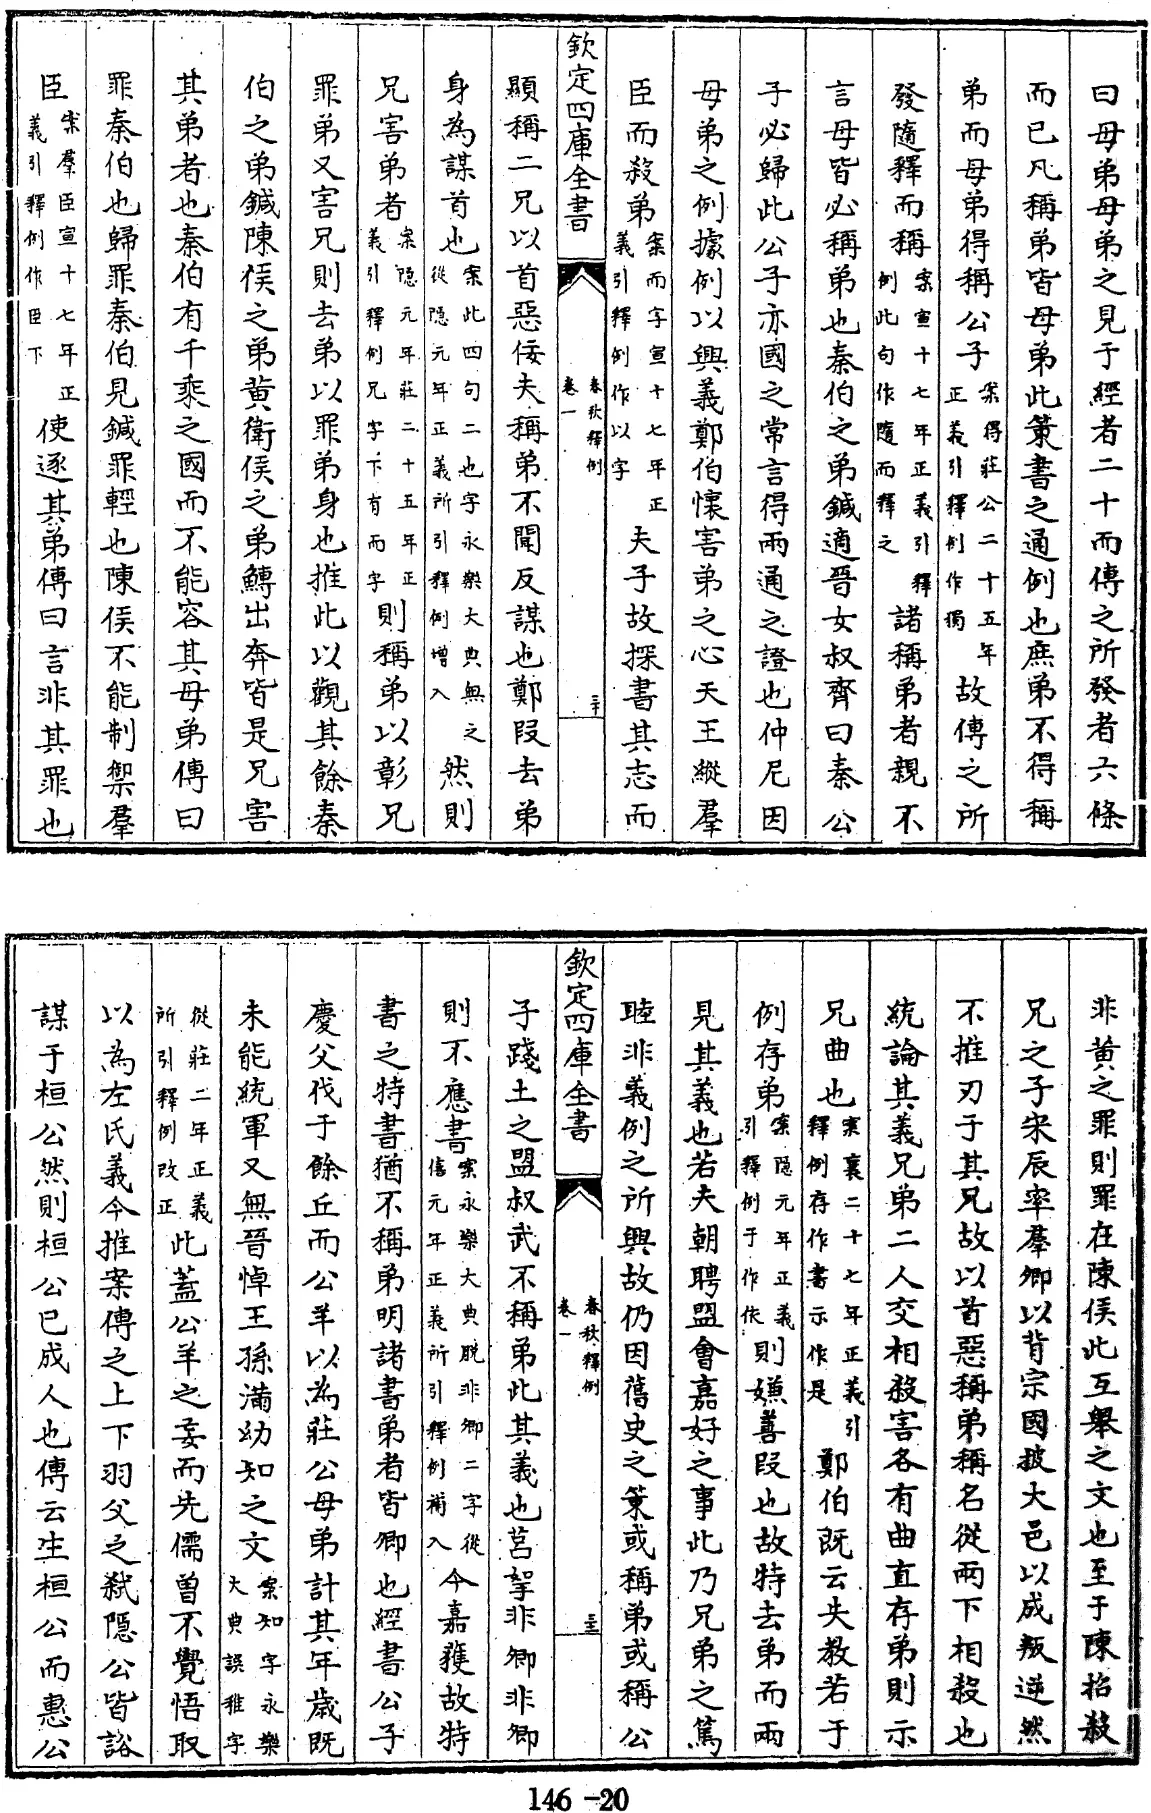 曰母弟母弟之見于經者二十而傳之所發者六條
而已凡稱弟皆母弟此策書之通例也庶弟不得稱
弟而母弟得稱公子案得莊公二十五年正義引釋例作獨故傳之所
發隨釋而稱案宣十七年正義引釋例此句作隨而釋之諸稱弟者親不
言母皆必稱弟也秦伯之弟鍼適晉女叔齊曰秦公
子必歸此公子亦國之常言得兩通之證也仲尼因
母弟之例據例以興義鄭伯懷害弟之心天王縱羣
臣而殺弟案而字宣十七年正義引釋例作以字夫子故探書其志而
欽定四庫全書
春秋釋例
卷一
三十
顯稱二兄以首惡佞夫稱弟不聞反謀也鄭段去弟
身為謀首也案此四句二也字永樂大典無之從隱元年正義所引釋例增入然則
兄害弟者案隱元年莊二十五年正義引釋例兄字下有而字則稱弟以彰兄
罪弟又害兄則去弟以罪弟身也推此以觀其餘秦
伯之弟鍼陳侯之弟黄衛侯之弟鱄出奔皆是兄害
其弟者也秦伯有千乘之國而不能容其母弟傳曰
罪秦伯也歸罪秦伯見鍼罪輕也陳侯不能制禦羣
臣案羣臣宣十七年正義引釋例作臣下使逐其弟傳曰言非其罪也
非黄之罪則罪在陳侯此互舉之文也至于陳招殺
兄之子宋辰率羣卿以背宗國披大邑以成叛逆然
不推刃于其兄故以首惡稱弟稱名從兩下相殺也
統論其義兄弟二人交相殺害各有曲直存弟則示
兄曲也案襄二十七年正義引釋例存作書示作是鄭伯既云失教若于
例存弟案隱元年正義引釋例于作依則嫌善段也故特去弟而兩
見其義也若夫朝聘盟會嘉好之事此乃兄弟之篤
睦非義例之所興故仍因舊史之策或稱弟或稱公
欽定四庫全書
春秋釋例
卷一
三十一
子踐土之盟叔武不稱弟此其義也莒挐非卿非卿
則不應書案永樂大典脫非卿二字從僖元年正義所引釋例補入今嘉獲故特
書之特書猶不稱弟明諸書弟者皆卿也經書公子
慶父伐于餘丘而公羊以為莊公母弟計其年歲既
未能統軍又無晉悼王孫滿幼知之文案知字永樂大典誤稚字
從莊二年正義所引釋例改正此蓋公羊之妄而先儒曾不覺悟取
以為左氏義今推案傳之上下羽父之弒隱公皆諮
謀于桓公然則桓公已成人也傳云生桓公而惠公
146-20